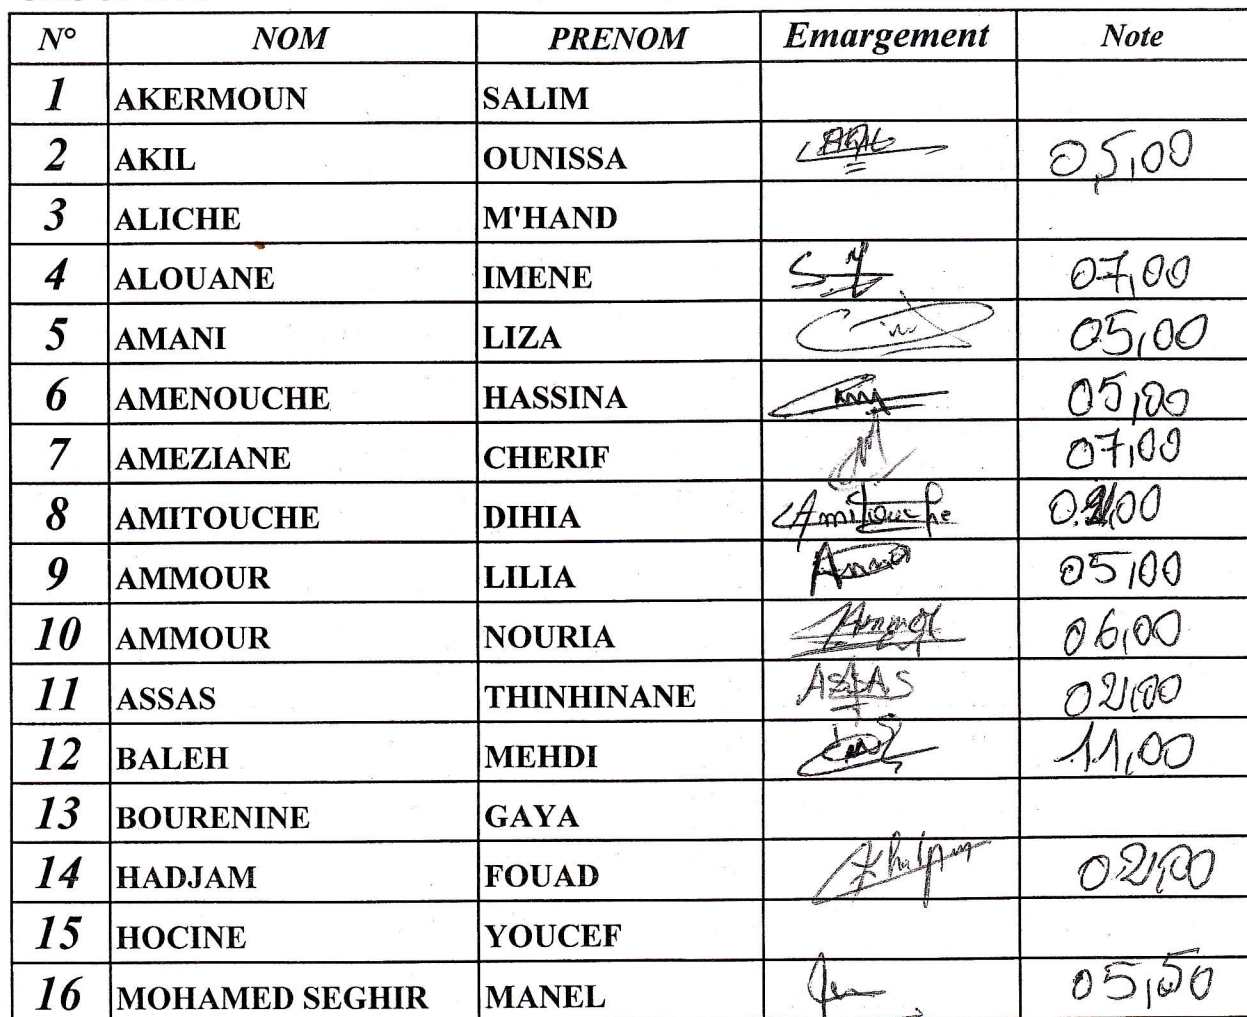 N° NOM PRENOM Emargement Note
1 AKERMOUN SALIM
2 AKIL OUNISSA 05,00
3 ALICHE M'HAND
4 ALOUANE IMENE 07,00
5 AMANI LIZA 05,00
6 AMENOUCHE HASSINA 05,00
7 AMEZIANE CHERIF 07,00
8 AMITOUCHE DIHIA Amitouche
9 AMMOUR LILIA 05,00
10 AMMOUR NOURIA 06,00
11 ASSAS THINHINANE ASSAS 02,00
12 BALEH MEHDI 11,00
13 BOURENINE GAYA
14 HADJAM FOUAD 02,00
15 HOCINE YOUCEF
16 MOHAMED SEGHIR MANEL 05,50